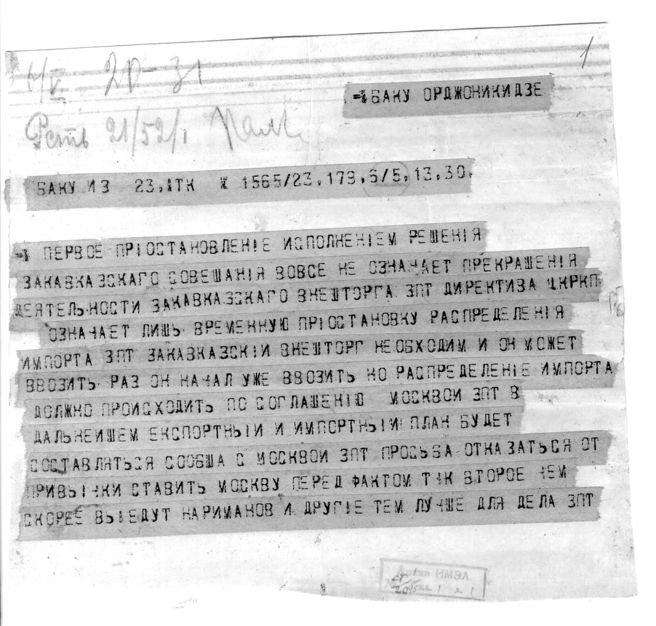 1
20-31
БАКУ ОРДЖОНИКИДЗЕ
21/52/1
БАКУ ИЗ 23, ITK Ж 1565/23, 179, 6/5, 13, 30,
ПЕРВОЕ ПРІОСТАНОВЛЕНІЕ ИСПОЛНЕНІЕМ РЕШЕНІЯ
ЗАКАВКАЗСКАГО СОВЕШАНІЯ ВОВСЕ НЕ ОЗНАЧАЕТ ПРЕКРАШЕНІЯ
ДЕЯТЕЛЬНОСТИ ЗАКАВКАЗСКАГО ВНЕШТОРГА ЗПТ ДИРЕКТИВА ЦКРКП
ОЗНАЧАЕТ ЛИШЬ ВРЕМЕННУЮ ПРІОСТАНОВКУ РАСПРЕДЕЛЕНІЯ
ИМПОРТА ЗПТ ЗАКАВКАЗСКІЙ ВНЕШТОРГ НЕОБХОДИМ И ОН МОЖЕТ
ВВОЗИТЬ РАЗ ОН НАЧАЛ УЖЕ ВВОЗИТЬ НО РАСПРЕДЕЛЕНІЕ ИМПОРТА
ДОЛЖНО ПРОИСХОДИТЬ ПО СОГЛАШЕНІЮ МОСКВОИ ЗПТ В
ДАЛЬНЕИШЕМ ЕКСПОРТНЫИ И ИМПОРТНЫИ ПЛАН БУДЕТ
СОСТАВЛЯТЬСЯ СООБША С МОСКВОИ ЗПТ ПРОСЬБА ОТКАЗАТЬСЯ ОТ
ПРИВЫЧКИ СТАВИТЬ МОСКВУ ПЕРЕД ФАКТОМ ТЧК ВТОРОЕ ЧЕМ
СКОРЕЕ ВЫЕДУТ НАРИМАНОВ И ДРУГІЕ ТЕМ ЛУЧШЕ ДЛЯ ДЕЛА ЗПТ